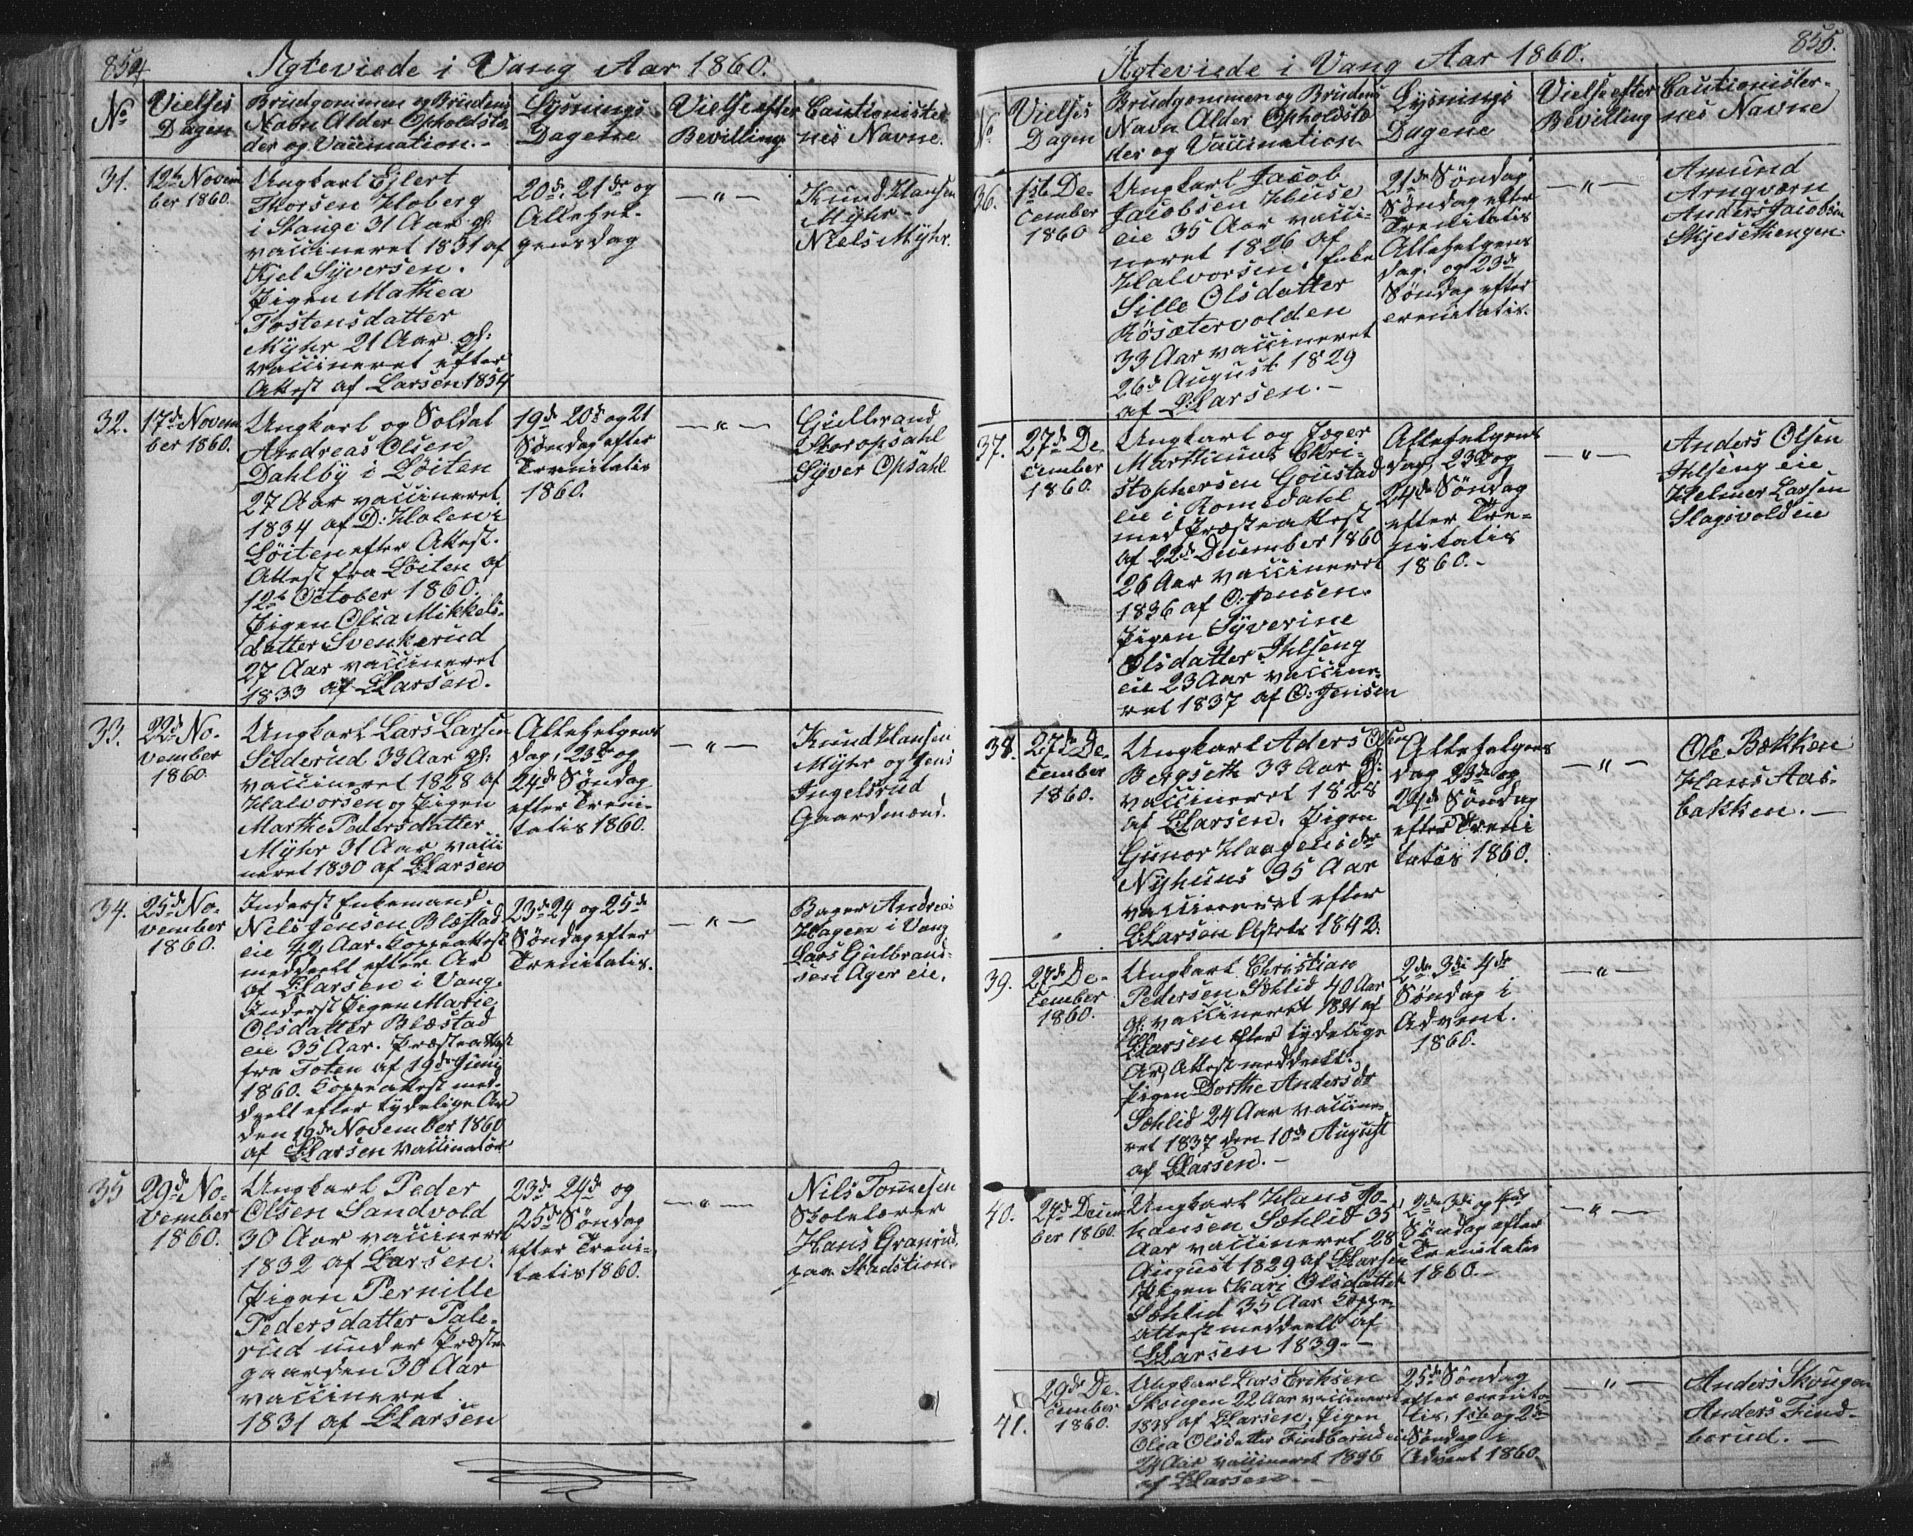 854
Ægteviede i Vang Aar 1860.
No
Vielses
Dagen
Brudgommen og Brudens
Navn Alder Opholdsste
der og Vaccination.-
Lysnings
Dagene
Vielse efter
Bevilling
Cautionister
nes Navne.
31.
12te Novem
ber 1860.
Ungkarl Ejlert
Thorsen Hoberg
i Stange 31 Aar gl:
vaccineret 1831 af
Kjel Syversen.
Pigen Mathea
Tostensdatter
Myhr 21 Aar. gl:
vaccineret efter
Attest af Larsen 1854
20de 21de og
Allehel-
gensdag
— „ —
Knud Hansen
Myhr-
Niels Myhr.
32.
17de Novem
ber 1860.
Ungkarl og Soldat
Andreas Olsen
Dahlby i Løiten
27 Aar vaccineret
1834 af D: Holen i
Løiten efter Attest.
Attest fra Løiten af
12te October 1860.
Pigen Olea Mikkels-
datter Svenkerud
27 Aar vaccineret
1833 af Larsen.
19de 20de og 21
Søndag efter
Trenitatis
1860.
— „ —
Gulbrand
Storopsahl
Syver Opsahl
33.
22de No-
vember
1860.
Ungkarl Lars Larsen
Suderud 33 Aar gl:
vaccineret 1828 af
Halvorsen og Pigen
Marthe Pedersdatter
Myhr 31 Aar vacci
neret 1830 af Larsen
Allehelgens
dag, 23de og
24de Søndag
efter Treni-
tatis 1860.
— „ —
Knud Hansen
Myhr og Jens
Ingelsrud
Gaardmænd.
34.
25de No-
vember
1860.
Inderst Enkemand
Nils Jensen Blæstad
eie 42 Aar. Koppeattest
meddeelt efter Ar
af Larsen i Vang.
Inderst Pigen Marie
Olsdatter Blæstad
eie 35 Aar. Præsteattest
fra Toten af 19de Juni
1860. Koppeattest med-
deelt efter tydelige Ar
den 19de November 1860
af Larsen Vaccinatør
23de 24 og 25de
Søndag efter
Trenitatis.
— „ —
Bager Andreas
Hagen i Vang
Lars Gulbrand-
sen Ager eie.
35
29de No-
vember
1860.
Ungkarl Peder
Olsen Sandvold
30 Aar vaccineret
1832 af Larsen.
Pigen Pernille
Pedersdatter Pale-
rud under Præste-
gaarden 30 Aar
vaccineret
1831 af Larsen
23de 24de og
25de Søndag
efter Treni-
tatis 1860.
— „ —
Nils Tommesen
Skolelærer
Hans Granrud
paa Stadstion.
855.
Ægteviede i Vang Aar 1860.
No
Vielses
Dagen
Brudgommen og Brudens
Navn Alder Opholdsste
der og Vaccination
Lysnings
Dagene
Vielse efter
Bevilling
Cautionister-
nes Navne
36.
1ste De-
cember
1860
Ungkarl Jacob
Jacobsen Huse
eie 35 Aar vacci-
neret 1826 af
Halvorsen, Enke
Sille Olsdatter
Røsætervolden
33 Aar vaccineret
26de August 1829
af Larsen.-
21de Søndag
Søndag efter
Trenitatis
Allehelgens
dag. og 23de
Søndag efter
trenitatis.
— „ —
Amund
Arnqværn
Anders Jacobsen
Skjesethengen
37.
27de De-
cember
1860.
Ungkarl og Jæger
Marthinus Chri-
stophersen Goustad
eie i Romsdahl
med Præsteattest
af 22de December 1860
26 Aar vaccineret
1836 af O: Jensen.
Pigen Syverine
Olsdatter Ihlseng
eie 23 Aar vaccine-
ret 1837 af O: Jensen
Allehelgens
dag, 23de og
24de Søndag
efter Tre-
nitatis
1860.-
— „ —
Anders Olsen
Ihlseng eie
Helmer Larsen
Slagsvold eie
38.
27de De-
cember
1860.
Ungkarl Aders Olsen
Bergseth 33 Aar gl:
vaccineret 1828
af Larsen. Pigen
Gunor Haagensdr
Nyhuus 35 Aar
vaccineret efter
Larsen Attest 1842.
Allehelgens
dag 23de og
24de Søndag
efter Treni
tatis 1860.
— „ —
Ole Bækken
Hans Aas-
bakken. —
39.
27de De-
cember
1860.
Ungkarl Christian
Pedersen Sæhlid 40 Aar
gl: vaccineret 1821 af
Larsen efter tydelige
Ar, Attest meddeelt.
Pigen Dorthe Andersdr
Sæhlid 24 Aar vaccine-
ret 1837 den 10de August
af Larsen.-
2den 3die 4de
Søndag i
Advent.
1860.
— „ —
40.
27de Decem
ber 1860.
Ungkarl Hans Jo-
hansen Sæhlid 35
Aar vaccineret 28
August 1829 af Larsen
Pigen Kari Olsdatter
Sæhlid 35 Aar Koppe-
attest meddeelt af
Larsen 1839.-
2den 3die og 4de
Søndag efter
Trenitatis
1860.-
— „ —
41.
29de De-
cember
1860.
Ungkarl Lars Eriksen
Skougen 22 Aar vaccineret
1838 af Larsen, Pigen
Olea Olsdatter Findberud eie
24 Aar vaccineret 1836
af Larsen.-
25de Søndag
efter trenita-
tis, 1ste og 2de
Søndag i
Advent 1860.
— „ —
Anders Skougen
Anders Find-
berud. —